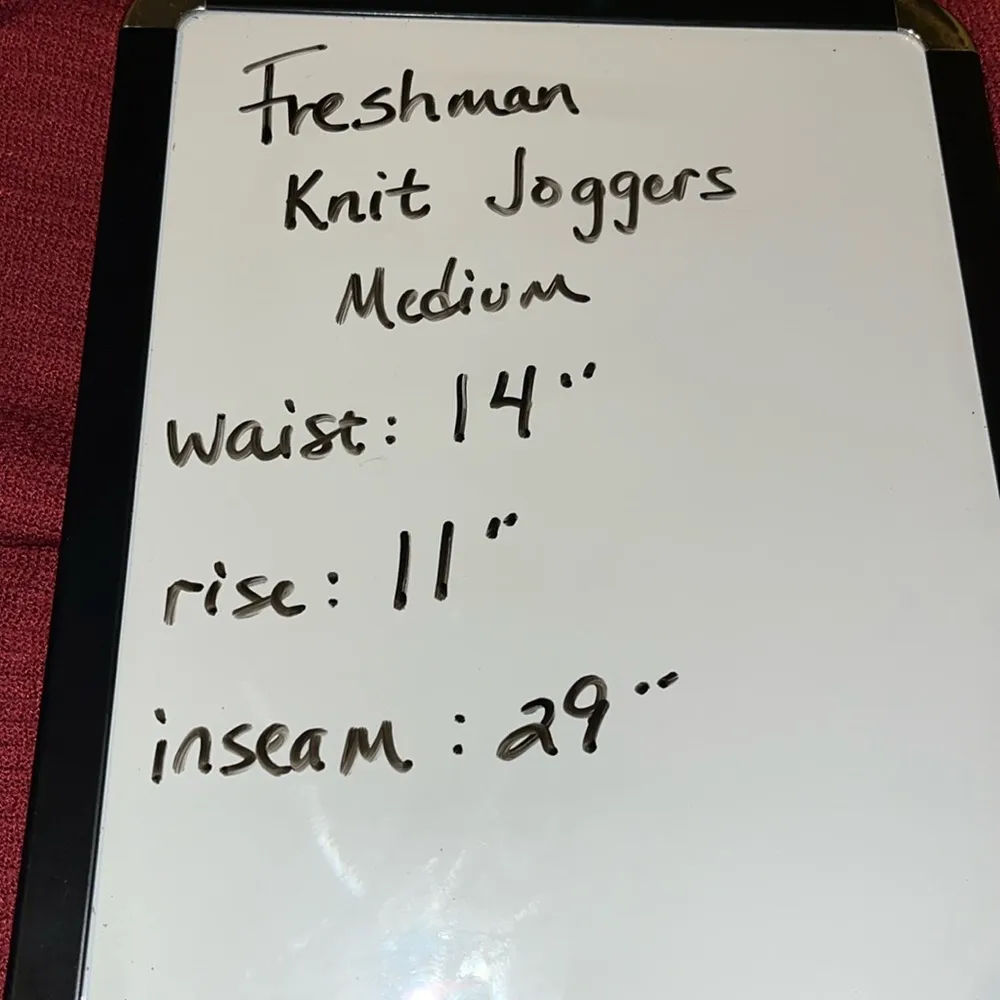 Freshman
Knit Joggers
Medium
waist: 14"
rise: 11"
inseam: 29"